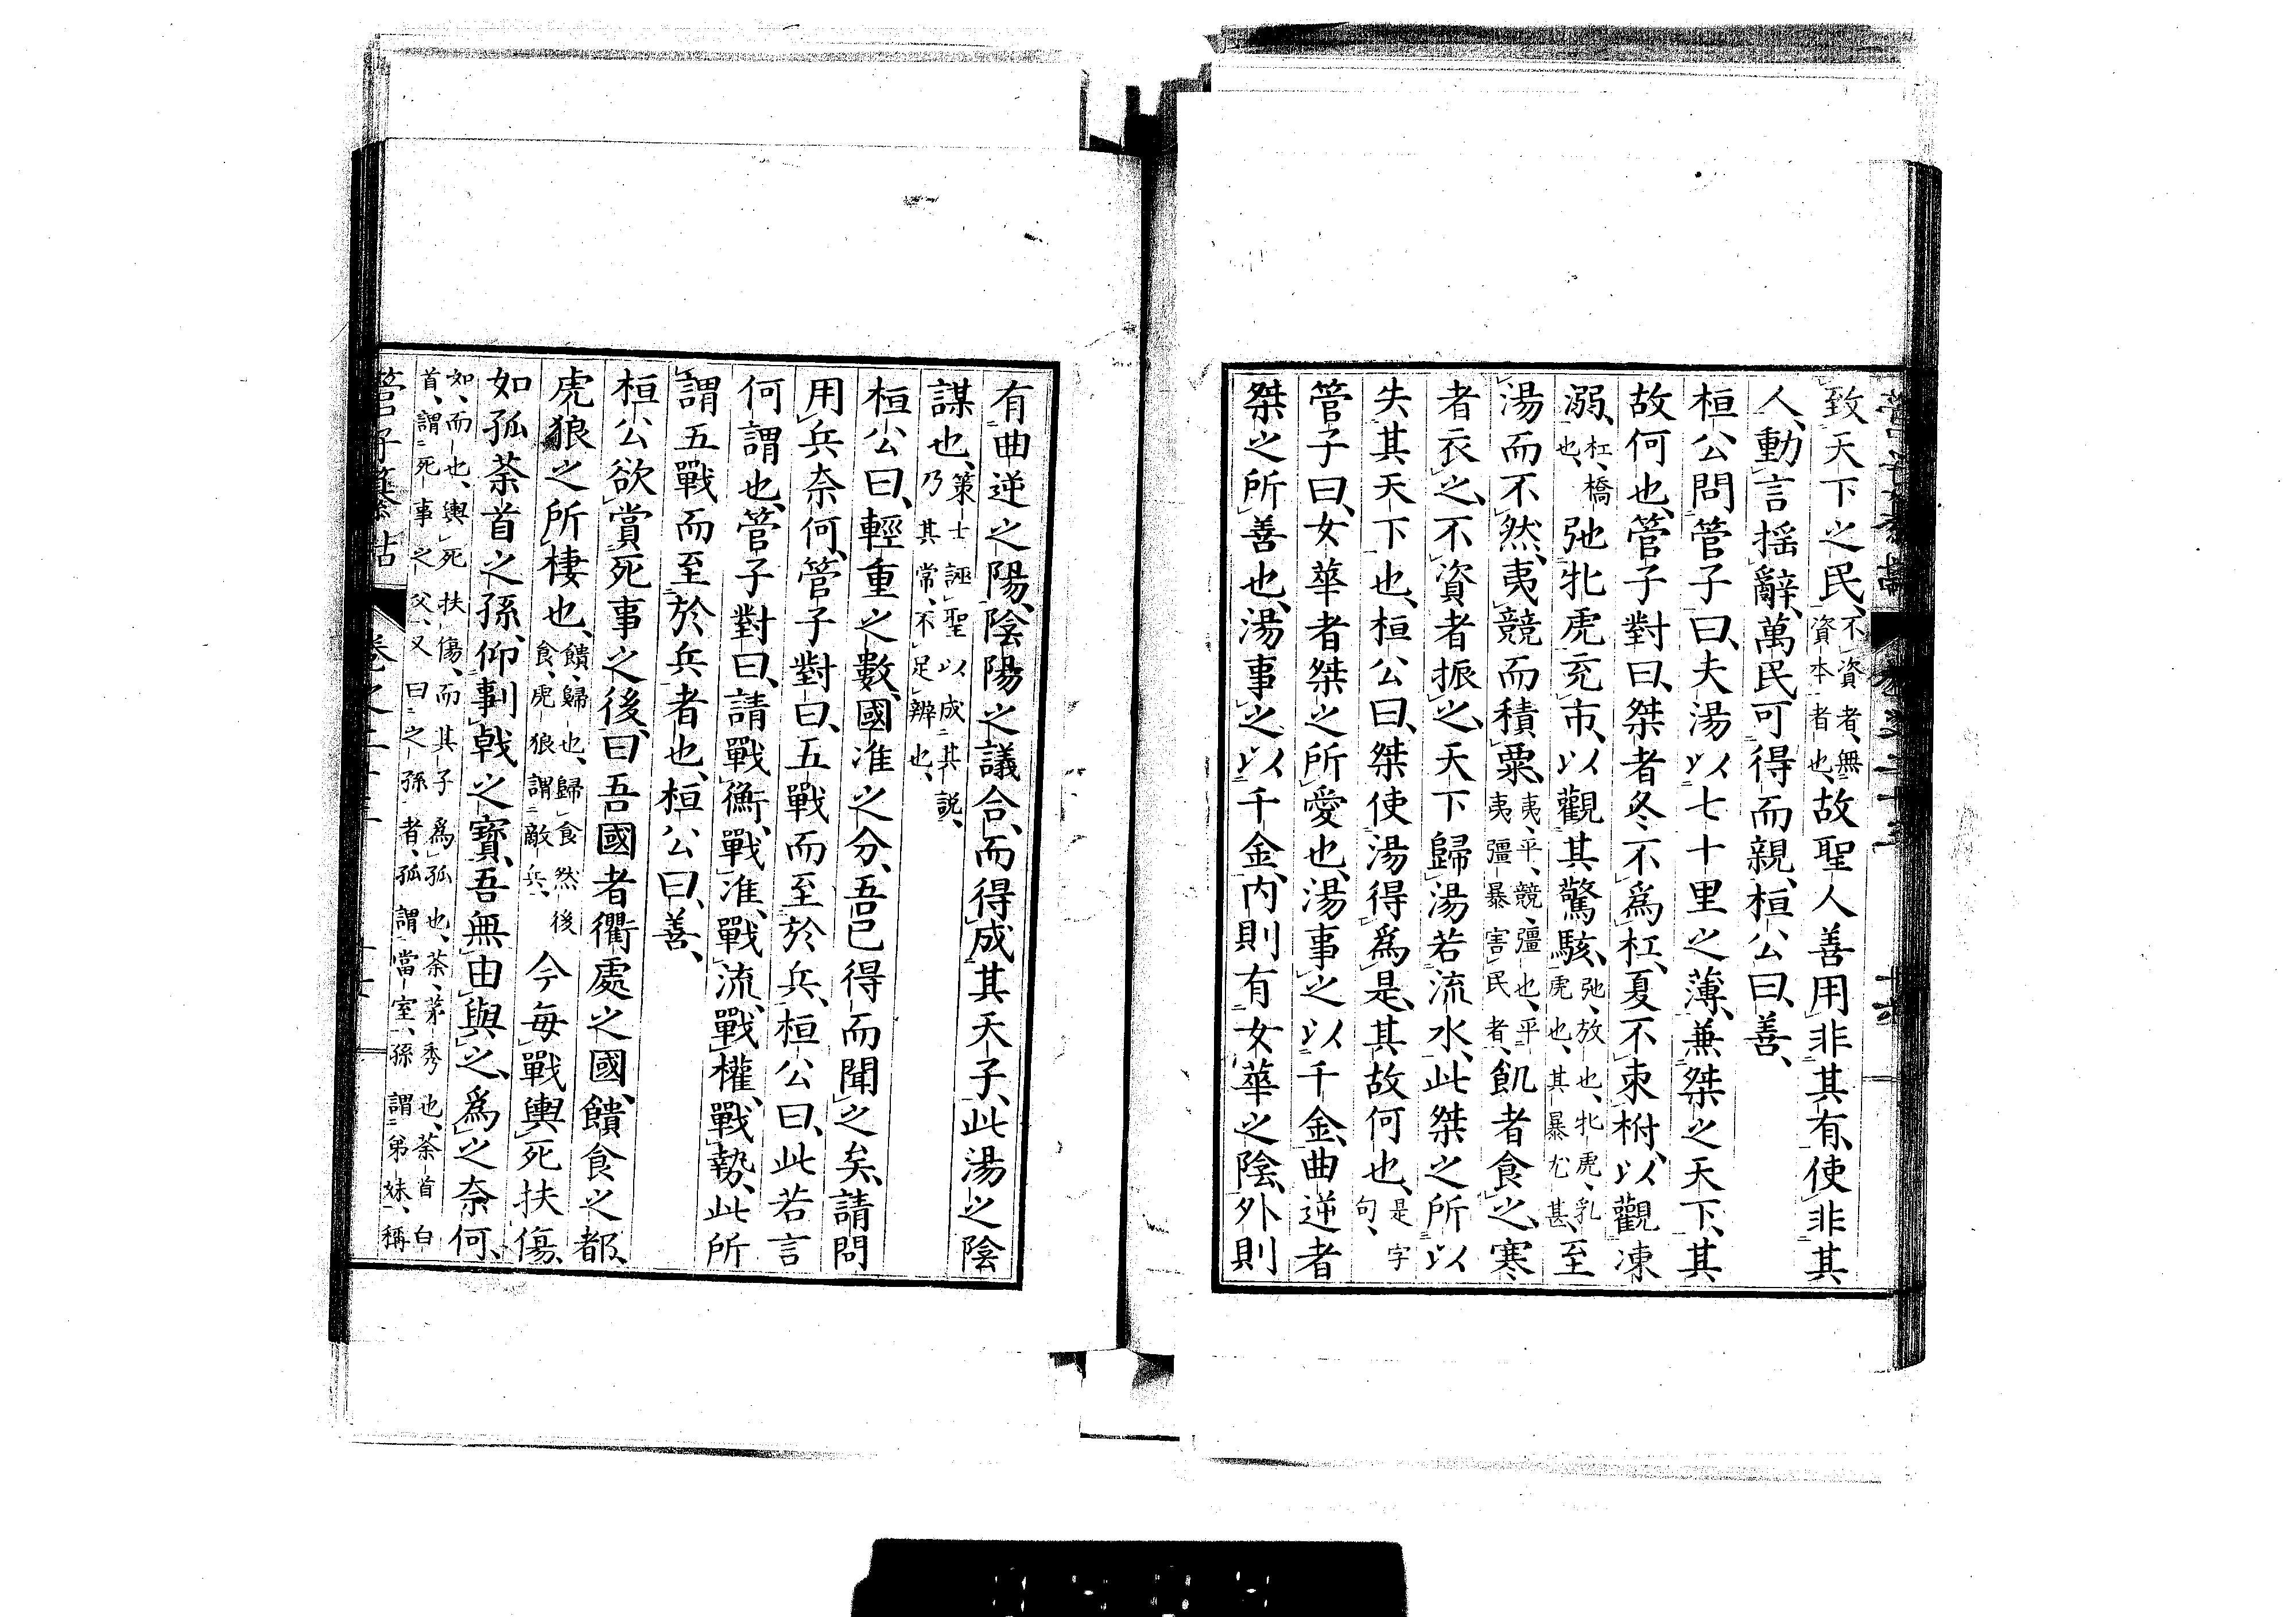 致天下之民、不資者、無資本者也、故聖人善用非其有、使非其
人、動言揺辭、萬民可得而親、桓公曰、善、
桓公問管子曰、夫湯以七十里之薄、兼桀之天下、其
故何也、管子對曰、桀者冬不爲杠、夏不束柎、以觀凍
溺、杠、橋也、弛牝虎充市、以觀其驚駭、弛、放也、牝虎、乳虎也、其暴尤甚、至
湯而不然、夷競而積粟、夷、平、競、彊也、平夷彊暴害民者、飢者食之、寒
者衣之、不資者振之、天下歸湯若流水、此桀之所以
失其天下也、桓公曰、桀使湯得爲是、其故何也、是字句、
管子曰、女華者桀之所愛也、湯事之以千金、曲逆者
桀之所善也、湯事之以千金、内則有女華之陰、外則
有曲逆之陽、陰陽之議合、而得成其天子、此湯之陰
謀也、策士誣聖以成其説、乃其常、不足辨也、
桓公曰、輕重之數、國准之分、吾已得而聞之矣、請問
用兵奈何、管子對曰、五戰而至於兵、桓公曰、此若言
何謂也、管子對曰、請戰衡、戰准、戰流、戰權、戰勢、此所
謂五戰而至於兵者也、桓公曰、善、
桓公欲賞死事之後、曰吾國者衢處之國、饋食之都、
虎狼之所棲也、饋、歸也、歸食然後食、虎狼謂敵兵、今每戰輿死扶傷、
如孤荼首之孫、仰剚戟之寶、吾無由與之、爲之奈何、
如、而也、輿死扶傷、而其子爲孤也、荼、茅秀也、荼首白
首、謂死事之父、又曰之孫者、孤謂當室、孫謂弟妹、稱
管子纂詁 卷之二十三